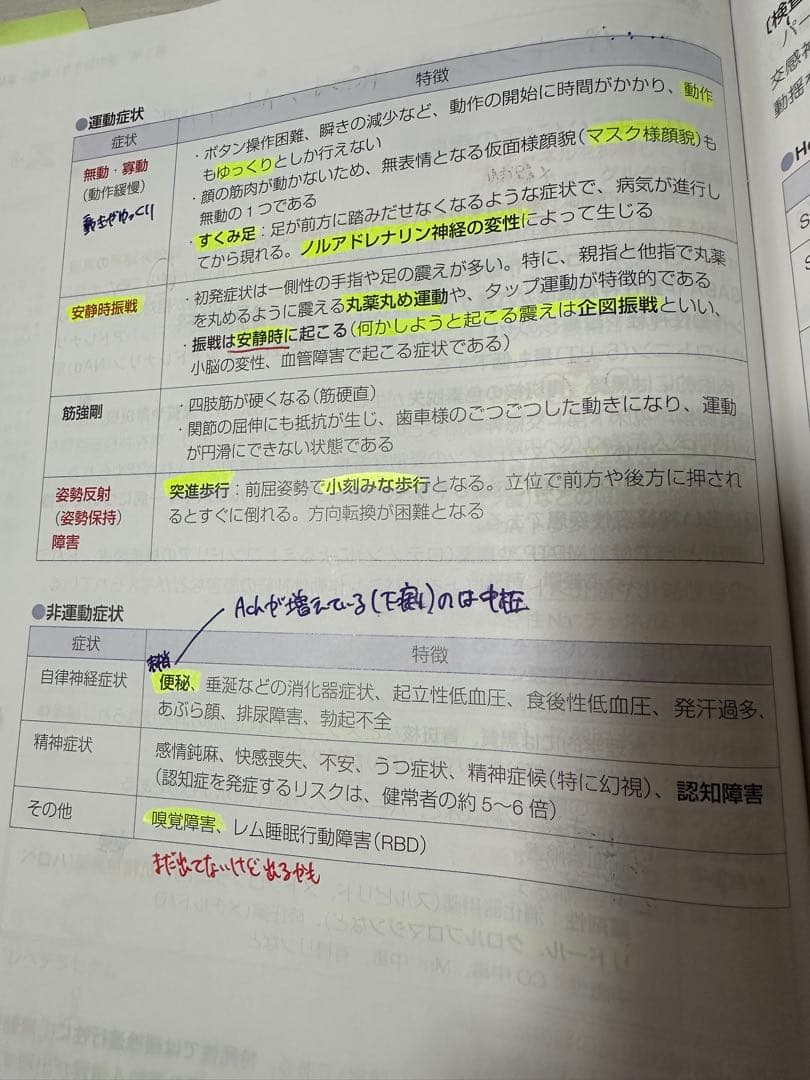 ●運動症状
症状
特徴
無動・寡動
(動作緩慢)
動きがゆっくり
・ボタン操作困難、瞬きの減少など、動作の開始に時間がかかり、動作
もゆっくりとしか行えない
・顔の筋肉が動かないため、無表情となる仮面様顔貌(マスク様顔貌)も
無動の1つである
・すくみ足：足が前方に踏みだせなくなるような症状で、病気が進行し
てから現れる。ノルアドレナリン神経の変性によって生じる
安静時振戦
・初発症状は一側性の手指や足の震えが多い。特に、親指と他指で丸薬
を丸めるように震える丸薬丸め運動や、タップ運動が特徴的である
・振戦は安静時に起こる(何かしようと起こる震えは企図振戦といい、
小脳の変性、血管障害で起こる症状である)
筋強剛
・四肢筋が硬くなる(筋硬直)
・関節の屈伸にも抵抗が生じ、歯車様のごつごつした動きになり、運動
が円滑にできない状態である
姿勢反射
(姿勢保持)
障害
突進歩行：前屈姿勢で小刻みな歩行となる。立位で前方や後方に押され
るとすぐに倒れる。方向転換が困難となる
Achが増えている(下痢)のは中枢
●非運動症状
症状
特徴
末梢
自律神経症状
便秘、垂涎などの消化器症状、起立性低血圧、食後性低血圧、発汗過多、
あぶら顔、排尿障害、勃起不全
精神症状
感情鈍麻、快感喪失、不安、うつ症状、精神症候(特に幻視)、認知障害
(認知症を発症するリスクは、健常者の約5〜6倍)
その他
嗅覚障害、レム睡眠行動障害(RBD)
まだ出てないけど出るかも
[検査
パー
交感神
動揺
●Ho